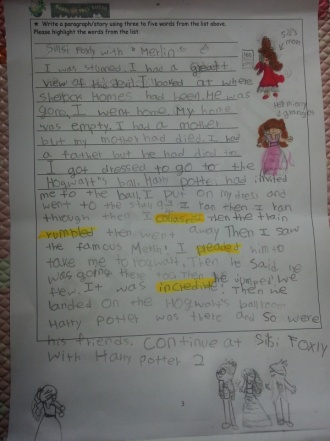 ★ Write a paragraph/story using three to five words from the list above.
Please highlight the words from the list.
SiBi Foxly with "Merlin"
I was stunned. I had a great
view of the devil. I looked at where
sherlock Homes had been. He was
gone. I went home. My home
was empty. I had a mother
but my mother had died. I had
a father but he had died too.
I got dressed to go to the
Hogwalt's ball. Harry Potter had invited
me to the ball. I put on my dress and
went to the I ran then I ran
through then I Then the train
rumbled then went away Then I saw
the famous Merlin! I pleaded him to
take me to Hogwalt. Then he said he
was going there too Then he we
flew. It was incredible. Then we
landed on the Hogwalt's ballroom
Harry Potter was there and so were
his friends. Continue at SiBi Foxly
With Harry Potter 2